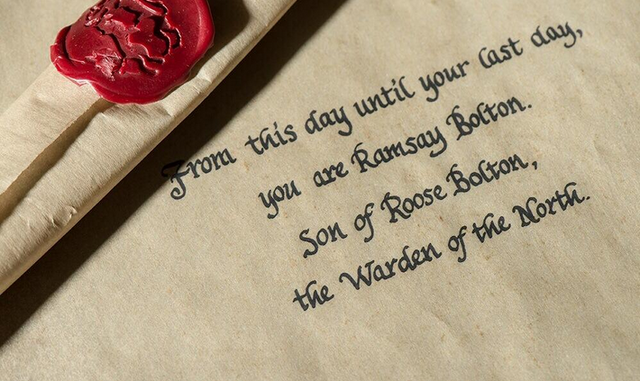 From this day until your last day,
you are Ramsay Bolton.
Son of Roose Bolton,
the Warden of the North.